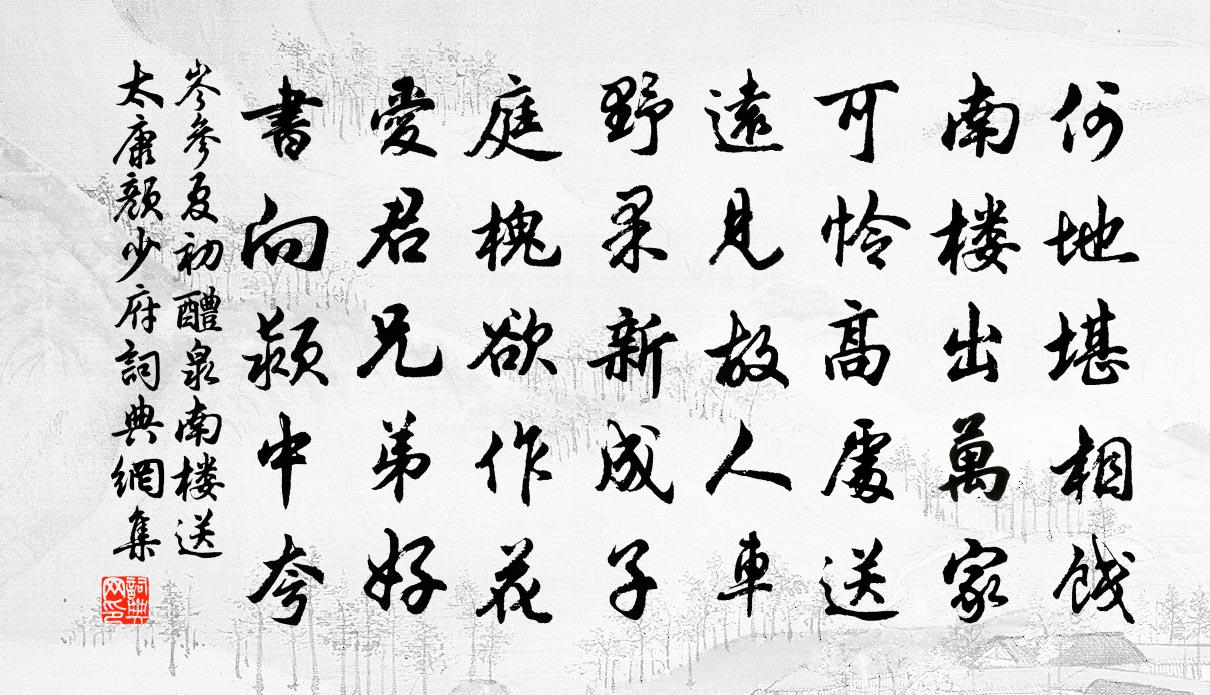 何地堪相餞
南楼出萬家
可怜高處送
遠見故人車
野果新成子
庭槐欲作花
愛君兄弟好
書向潁中夸
岑參夏初醴泉南楼送
太康顏少府詞典網集
詞典